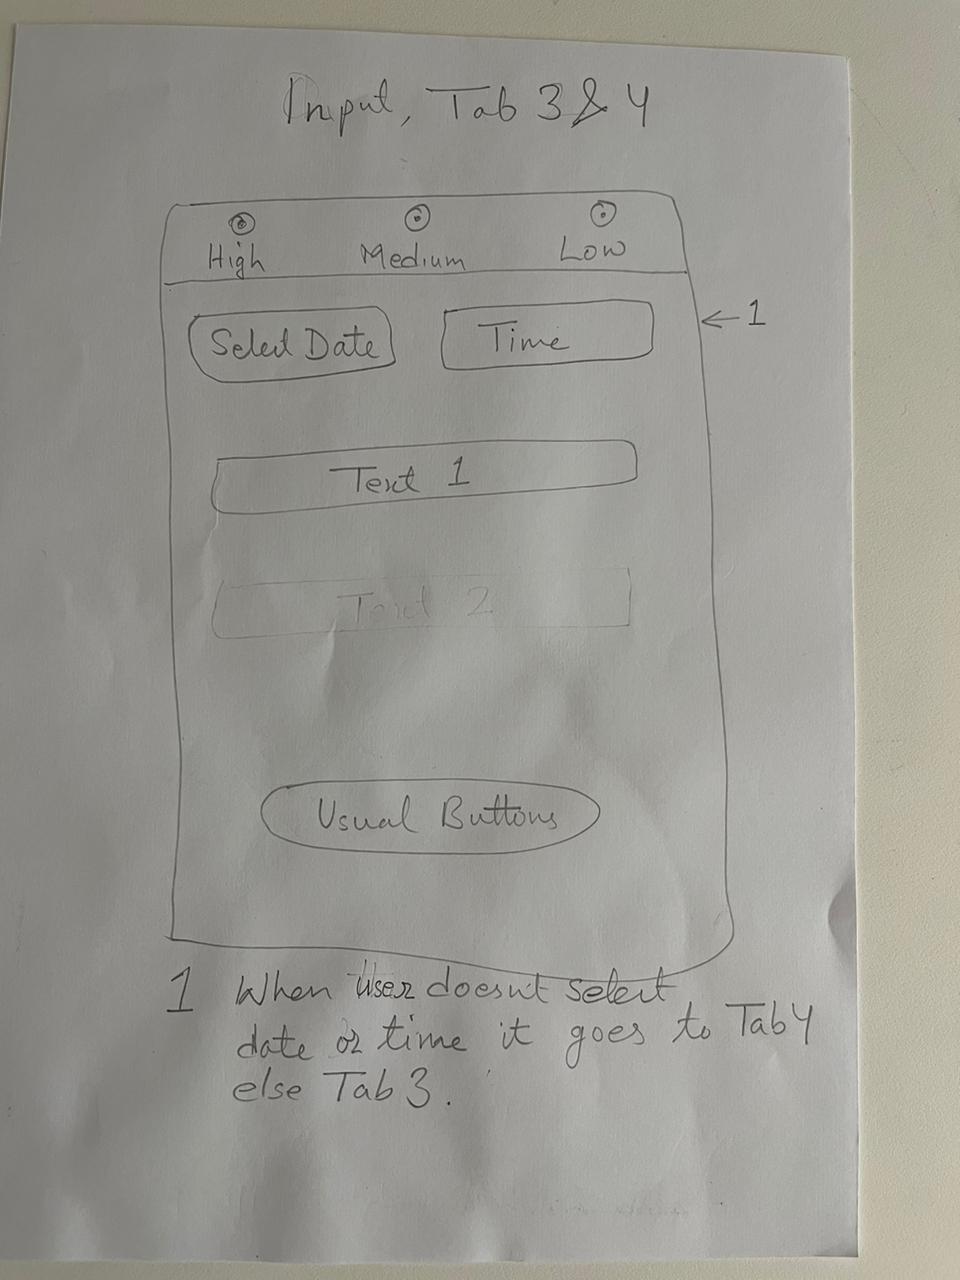 Input, Tab 3 & 4
High Medium Low
Select Date Time
← 1
Text 1
Text 2
Usual Buttons
1 When User doesn't select
date or time it goes to Tab 4
else Tab 3.